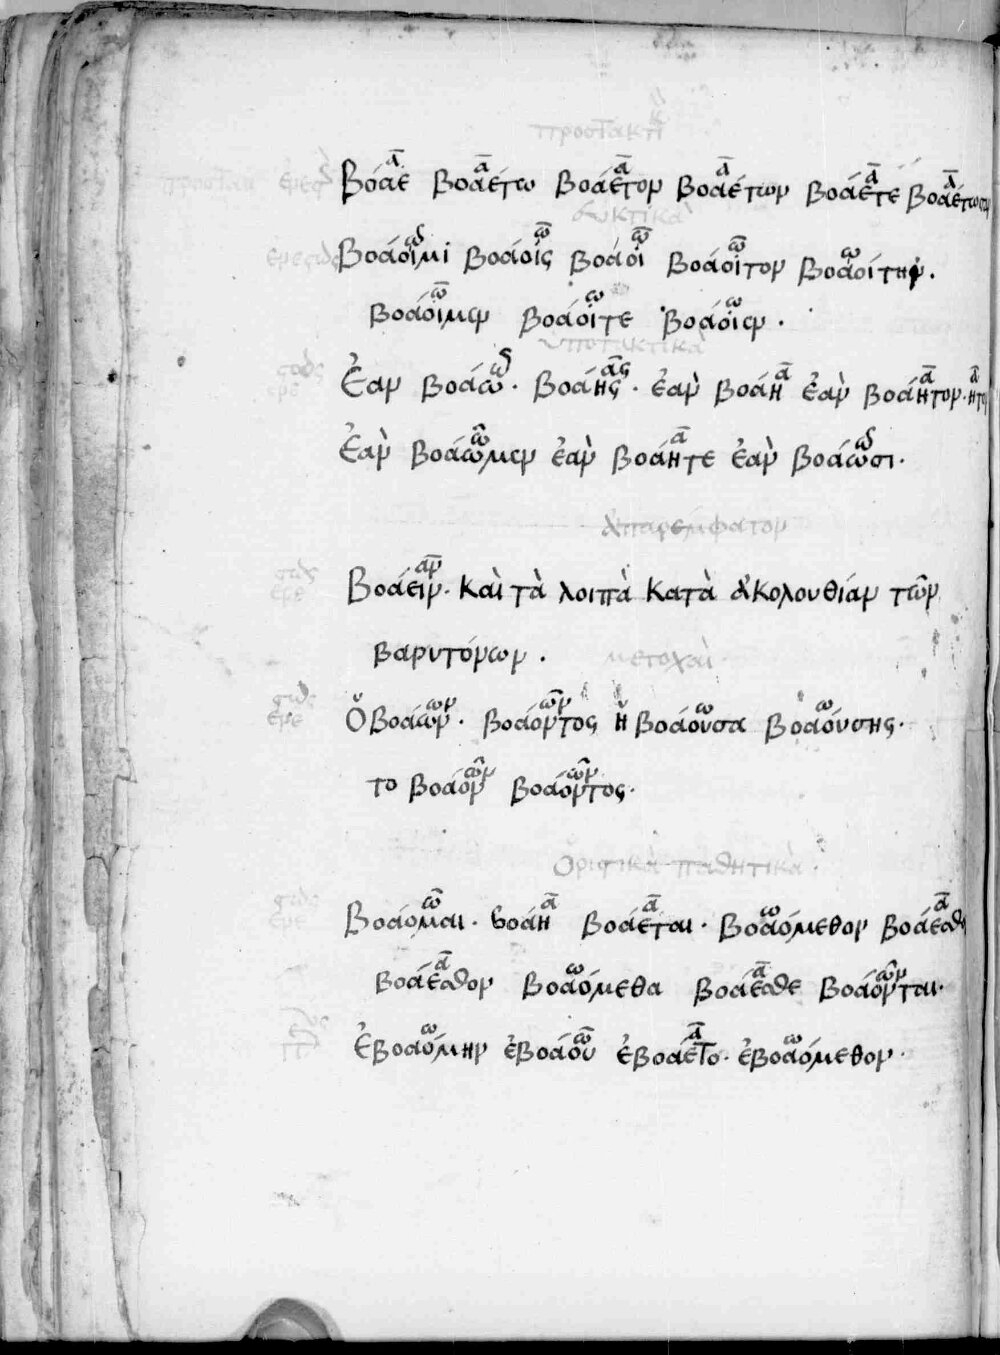 προστακτικ
Βόαε βοαέτω βοάετον βοαέτων βοάετε βοαέτωσαν
εὐκτικὰ
Βοάοιμι βοάοις βοάοι βοάοιτον βοαοίτην.
βοάοιμεν βοάοιτε βοάοιεν.
ὑποτακτικὰ
Ἐὰν βοάω. βοάῃς. ἐὰν βοάῃ ἐὰν βοάητον.
Ἐὰν βοάωμεν ἐὰν βοάητε ἐὰν βοάωσι.
ἀπαρέμφατον
Βοάειν. καὶ τὰ λοιπὰ κατὰ ἀκολουθίαν τῶν
βαρυτόνων. μετοχαὶ
Ὁ βοάων. βοάοντος ἡ βοάουσα βοαούσης.
το βοάον βοάοντος.
Ὁριστικὰ παθητικὰ.
Βοάομαι. βοάῃ βοάεται. βοαόμεθον βοάεσθον
βοάεσθον βοαόμεθα βοάεσθε βοάονται.
Ἐβοαόμην ἐβοάου ἐβοάετο. ἐβοαόμεθον.